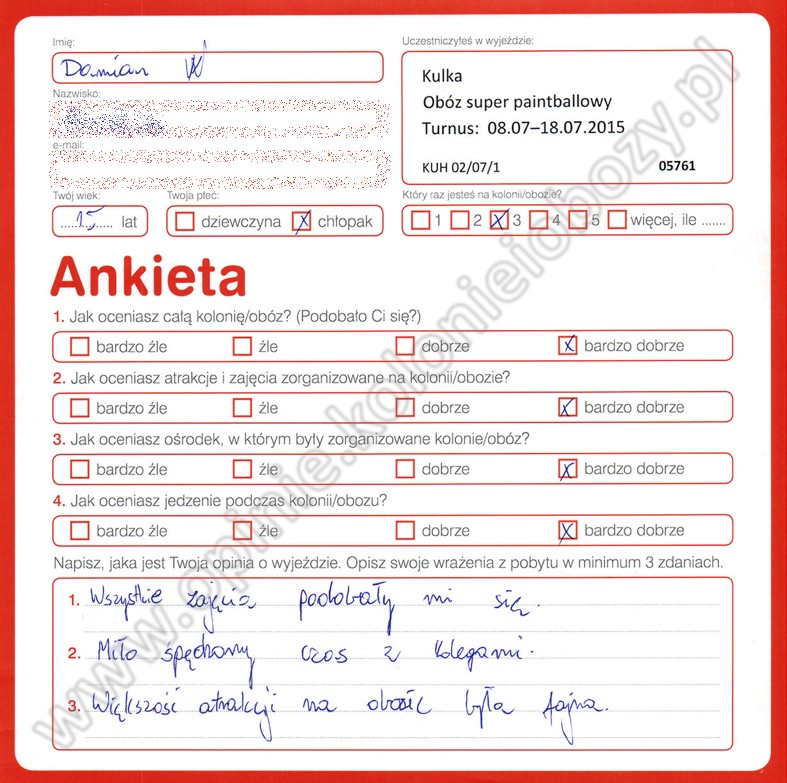 Imię:
Damian W
Nazwisko:
e-mail:
Twój wiek:
15 lat
Twoja płeć:
dziewczyna chłopak
Uczestniczyłeś w wyjeździe:
Kulka
Obóz super paintballowy
Turnus: 08.07–18.07.2015
KUH 02/07/1 05761
Który raz jesteś na kolonii/obozie?
1 2 3 4 5 więcej, ile .......
Ankieta
1. Jak oceniasz całą kolonię/obóz? (Podobało Ci się?)
bardzo źle źle dobrze bardzo dobrze
2. Jak oceniasz atrakcje i zajęcia zorganizowane na kolonii/obozie?
bardzo źle źle dobrze bardzo dobrze
3. Jak oceniasz ośrodek, w którym były zorganizowane kolonie/obóz?
bardzo źle źle dobrze bardzo dobrze
4. Jak oceniasz jedzenie podczas kolonii/obozu?
bardzo źle źle dobrze bardzo dobrze
Napisz, jaka jest Twoja opinia o wyjeździe. Opisz swoje wrażenia z pobytu w minimum 3 zdaniach.
1. Wszystkie zajęcia podobały mi się.
2. Miło spędzony czas z kolegami.
3. Większość atrakcji na obozie była fajna.
www.opinie.kolonieiobozy.pl